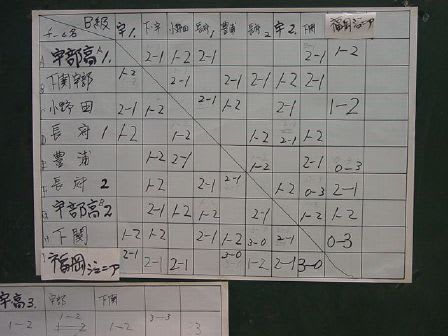 B級 チーム名 宇1. 下宇 小野田 長府1 豊浦 長府2 宇2. 下関 福岡ジュニア
宇部高1. 2-1 1-2 2-1 2-1 1-2
下関宇部 1-2 2-1 1-2 1-2 2-1
小野田 2-1 1-2 2-1 1-2 2-1 1-2
長府1 1-2 1-2 1-2 2-1 1-2
豊浦 1-2 2-1 1-2 2-1 0-3
長府2 1-2 2-1 2-1 1-2 0-3 2-1
宇部高2 2-1 1-2 1-2 2-1 1-2 1-2
下関 1-2 1-2 2-1 1-2 3-0 2-1 0-3
福岡ジュニア 2-1 2-1 2-1 3-0 1-2 2-1 3-0
宇高3. 宇部 下関
1-2 1-2 1-2 3-3 3